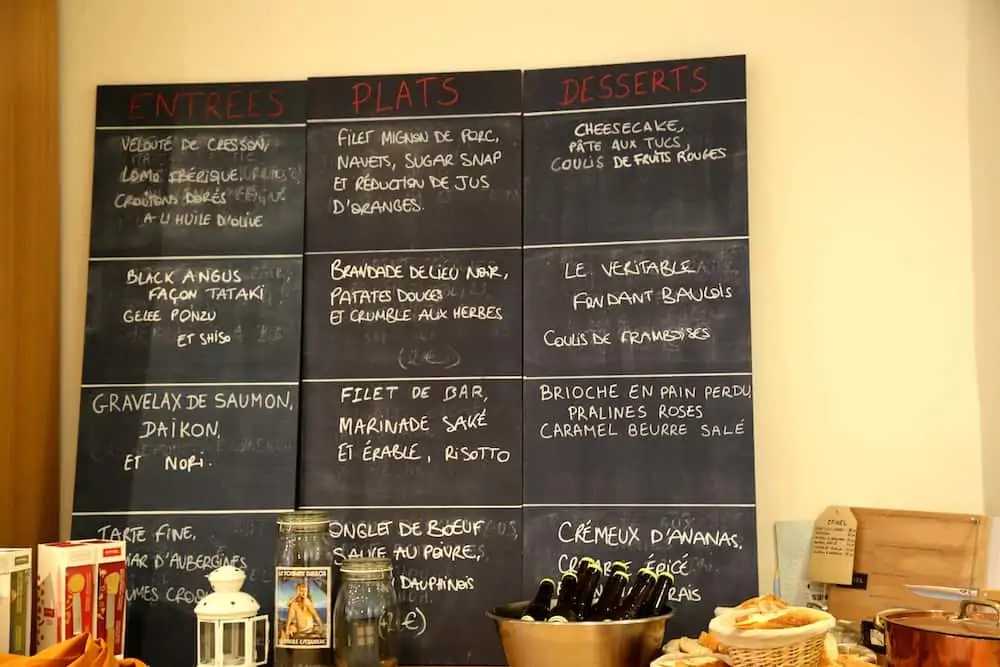 ENTRÉES
VELOUTÉ DE CRESSON,
LOMO IBÉRIQUE,
CROUTONS DORÉS
A L'HUILE D'OLIVE
BLACK ANGUS
FAÇON TATAKI
GELEE PONZU
ET SHISO
GRAVELAX DE SAUMON,
DAÏKON,
ET NORI.
TARTE FINE,
D'AUBERGINES
PLATS
FILET MIGNON DE PORC,
NAVETS, SUGAR SNAP
ET RÉDUCTION DE JUS
D'ORANGES.
BRANDADE DE LIEU NOIR,
PATATES DOUCES
ET CRUMBLE AUX HERBES
(2€)
FILET DE BAR,
MARINADE SAKÉ
ET ÉRABLE, RISOTTO
ONGLET DE BŒUF
SAUCE AU POIVRE,
DAUPHINOIS
DESSERTS
CHEESECAKE,
PÂTE AUX TUCS,
COULIS DE FRUITS ROUGES
LE VERITABLE
FONDANT BAULOIS
COULIS DE FRAMBOISES
BRIOCHE EN PAIN PERDU
PRALINES ROSES
CARAMEL BEURRE SALÉ
CRÉMEUX D'ANANAS,
ÉPICÉ